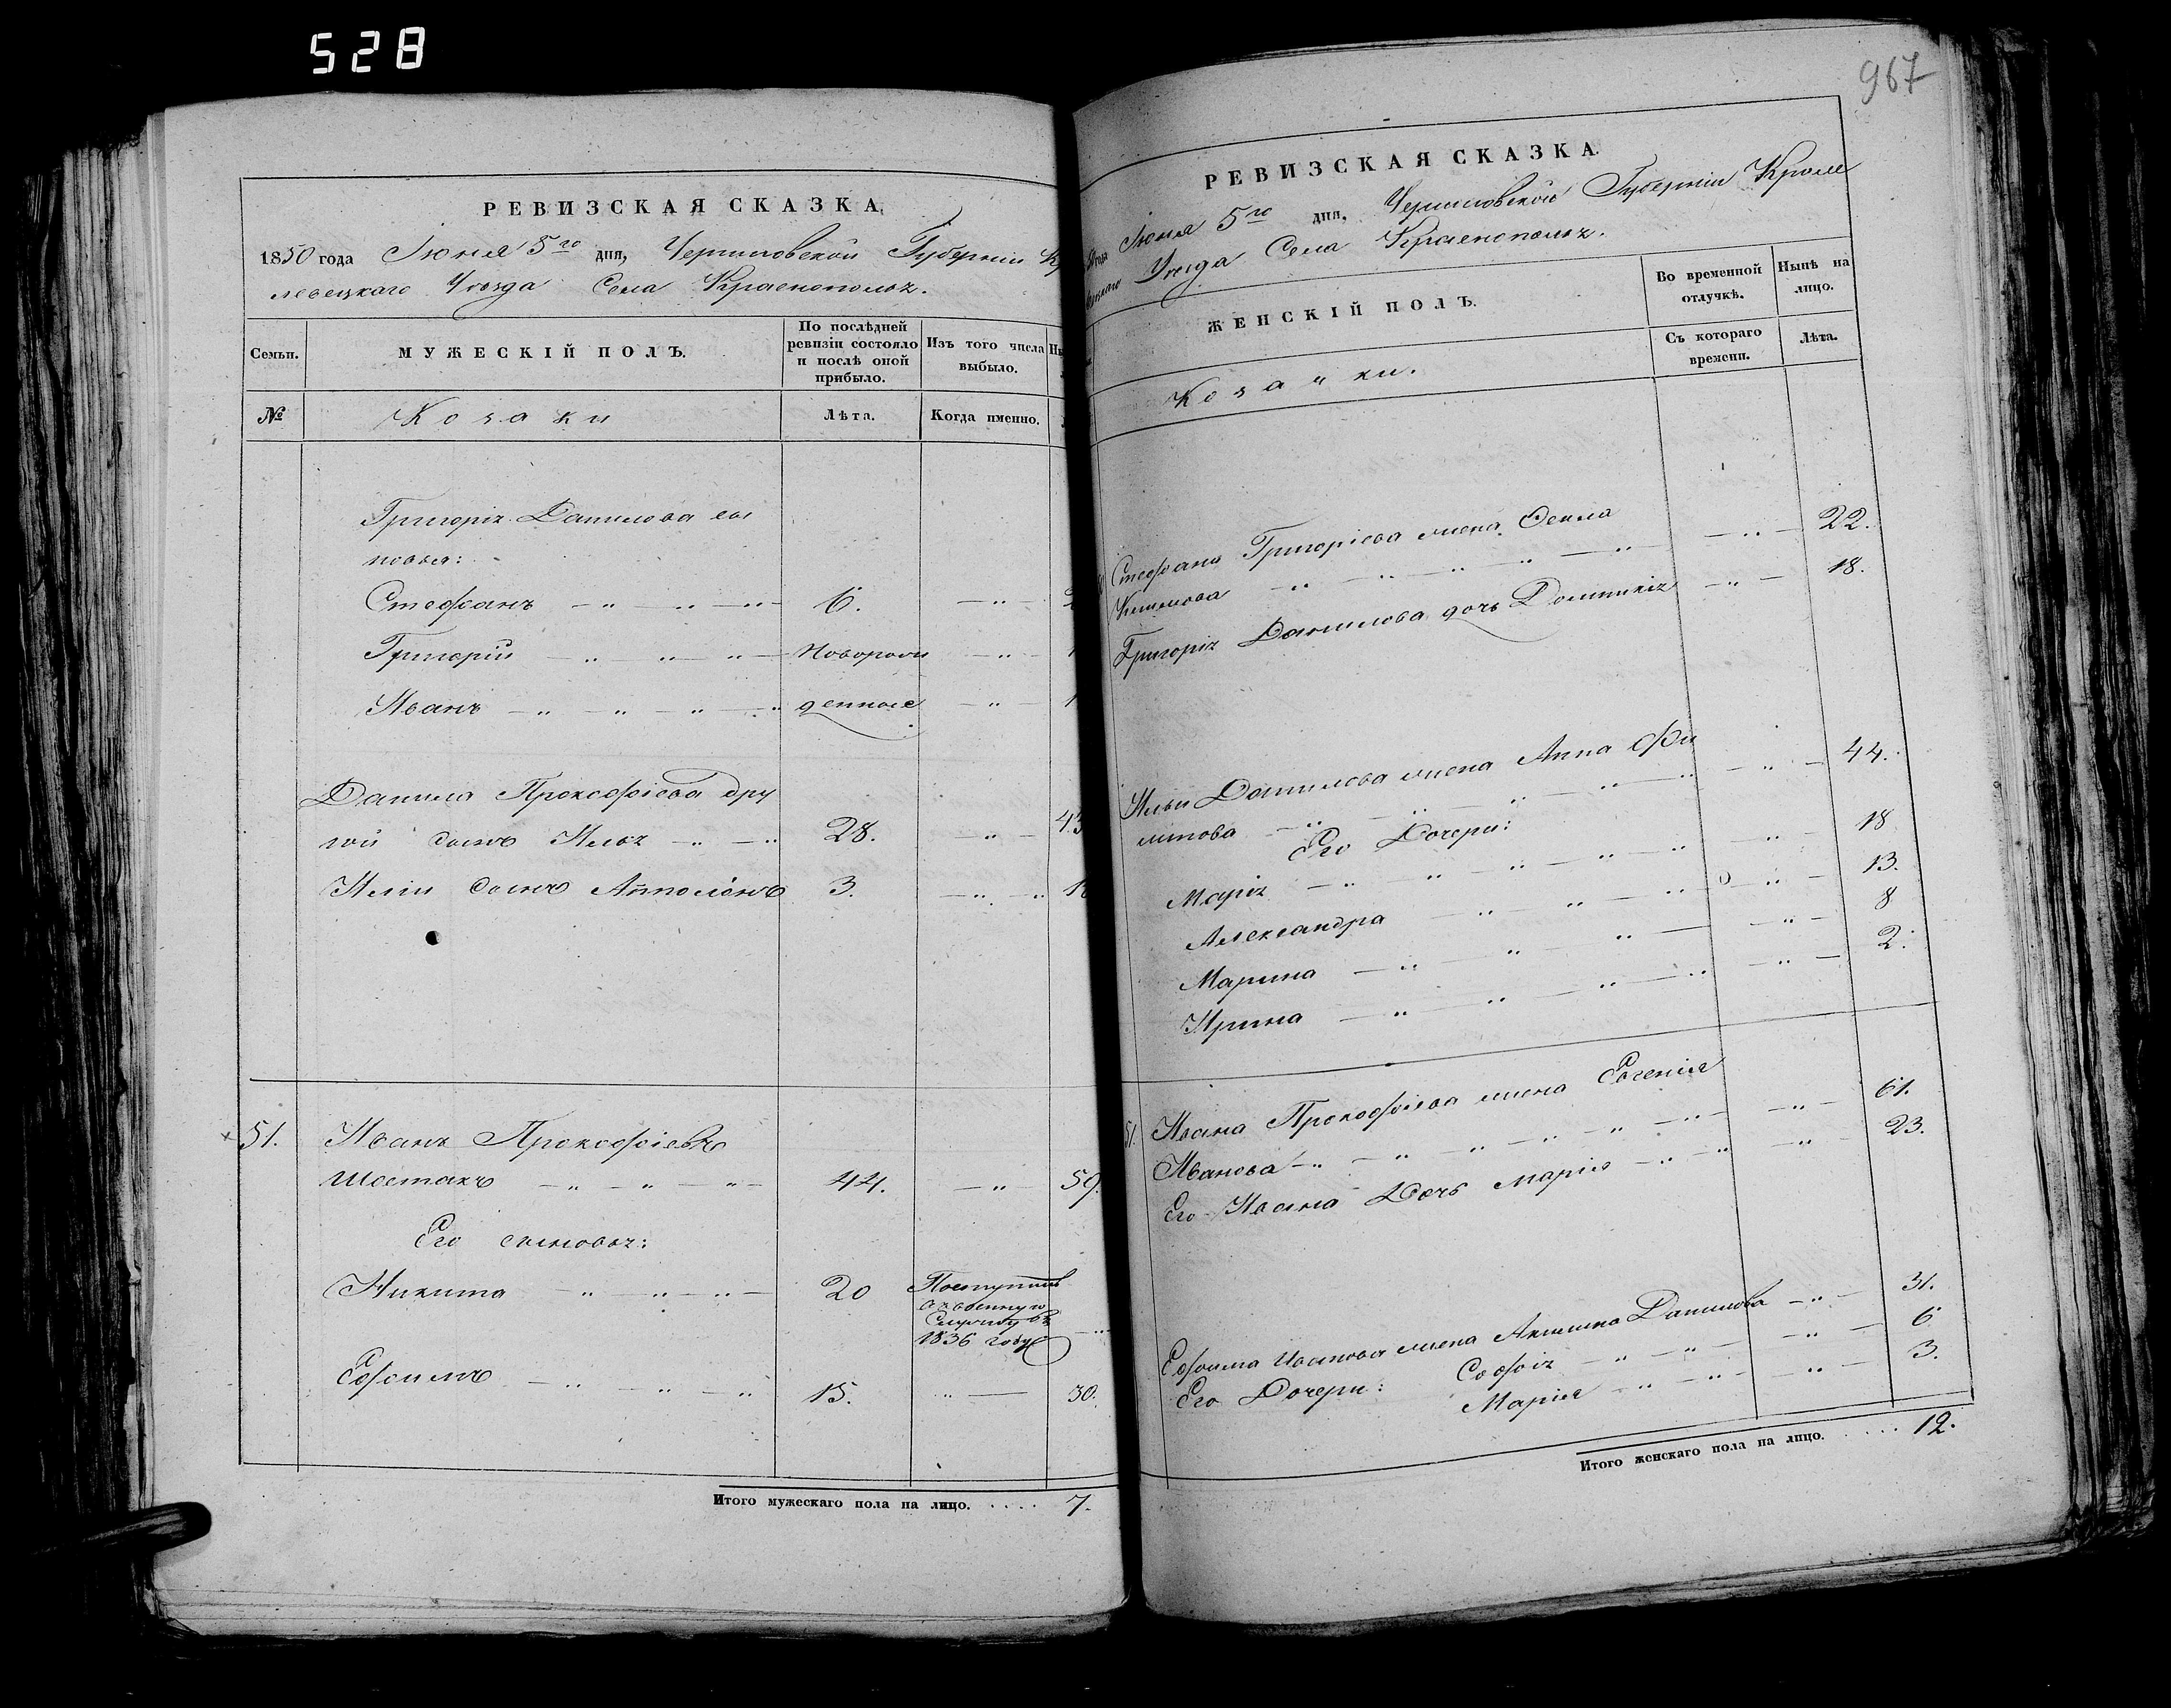 528
РЕВИЗСКАЯ СКАЗКА
1850 года Июня 5го дня, Черниговской Губернии К
левецкаго Уезда Села Краснополья.
Семьи.
МУЖЕСКІЙ ПОЛЪ.
По послѣдней ревизіи состояло и послѣ оной прибыло.
Изъ того числа выбыло.
№
Козаки
Лѣта.
Когда именно.
Григорія Данилова сы
новья:
Стефанъ 6.
Григорій новорож
Иванъ денные
Данила Прокофіева дру
гой сынъ Илья 28. 43
Иліи сынъ Апполонъ 3.
51. Иванъ Прокофіевъ
Шостакъ 44. 59.
Его сыновья:
Никита 20 Поступилъ
въ военную
Службу въ
1836 году
Ефимъ 15. 30.
Итого мужескаго пола на лицо. . . . . 7.
967
РЕВИЗСКАЯ СКАЗКА
года Июня 5го дня, Черниговской Губерніи Кроле
Уезда Села Краснополья.
ЖЕНСКІЙ ПОЛЪ.
Во временной отлучкѣ.
Нынѣ на лицо.
Козачки.
Съ котораго времени.
Лѣта.
Стефана Григоріева жена Фекла
22.
Григорія Данилова дочь Домникія 18.
Ильи Данилова жена Анна Фи
липова 44.
Его Дочери:
Марія 18
Александра 13.
Марина 8
Ирина 2.
51. Ивана Прокофіева жена Евгенія
Иванова 61.
Его Ивана Дочь Марія 23.
Ефима Иванова жена Акилина Данилова 31.
Его Дочери: Софія 6
Марія 3.
Итого женскаго пола на лицо. . . . . 12.